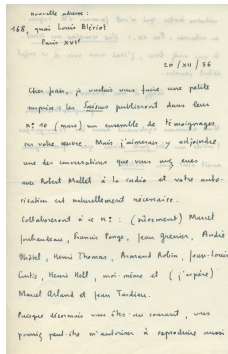 nouvelle adresse :
168, quai Louis Blériot
Paris XVIe
20/XII/56
Cher Jean, je voulais vous faire une petite
surprise : les Saisons publieront dans leur
n° 10 (mars) un ensemble de témoignages
sur votre œuvre. Mais j'aimerais y adjoindre
une des conversations que vous avez eues
avec Robert Mallet à la radio et votre auto-
risation est naturellement nécessaire.
Collaboreront à ce n° : (sûrement) Marcel
Jouhandeau, Francis Ponge, Jean Grenier, André
Dhôtel, Henri Thomas, Armand Robin, Jean-Louis
Curtis, Henri Hell, moi-même et (j'espère)
Marcel Arland et Jean Tardieu.
Puisque désormais vous êtes au courant, vous
pourriez peut-être m'autoriser à reproduire aussi